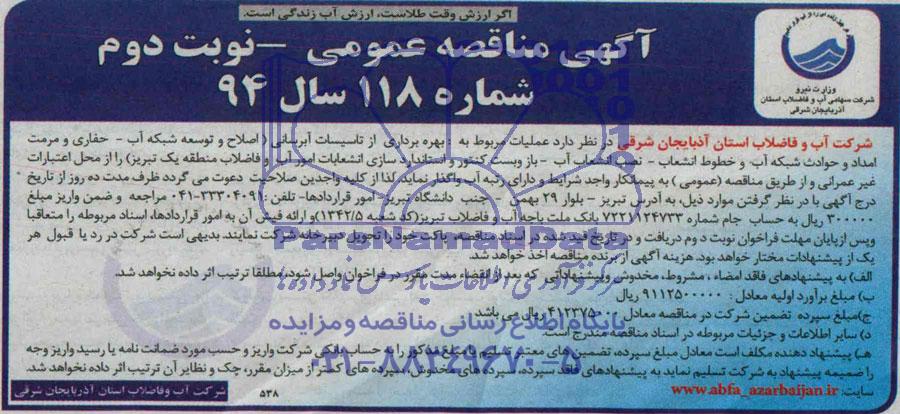 اگر ارزش وقت طلاست، ارزش آب زندگی است.
آگهی مناقصه عمومی – نوبت دوم
شماره ۱۱۸ سال ۹۴
وزارت نیرو
شرکت سهامی آب و فاضلاب استان
آذربایجان شرقی
شرکت آب و فاضلاب استان آذبایجان شرقی در نظر دارد عملیات مربوط به (بهره برداری از تاسیسات آبرسانی (اصلاح و توسعه شبکه آب - حفاری و مرمت
امداد و حوادث شبکه آب و خطوط انشعاب - نصب انشعاب آب - باز وبست کنتور و استاندارد سازی انشعابات امور آب و فاضلاب منطقه یک تبریز) را از محل اعتبارات
غیر عمرانی و از طریق مناقصه (عمومی) به پیمانکار واجد شرایط و دارای رتبه آب واگذار نماید. لذا از کلیه واجدین صلاحیت دعوت می گردد ظرف مدت ده روز از تاریخ
درج آگهی با در نظر گرفتن موارد ذیل، به آدرس تبریز - بلوار ۲۹ بهمن - جنب دانشگاه تبریز - امور قراردادها - تلفن: ۳۳۳۰۴۰۹۱-۰۴۱ مراجعه و ضمن واریز مبلغ
۳۰۰۰۰۰ ریال به حساب جام شماره ۷۲۲۱۱۲۴۷۳۳ بانک ملت باجه آب و فاضلاب تبریز(کد شعبه ۱۳۴۲/۵)و ارائه فیش آن به امور قراردادها، اسناد مربوطه را متعاقبا
وپس ازپایان مهلت فراخوان نوبت دوم دریافت و در تاریخ قید شده در اسناد مناقصه، پاکت خود را تحویل دبیرخانه شرکت نمایند. بدیهی است شرکت در رد یا قبول هر
یک از پیشنهادات مختار خواهد بود. هزینه آگهی از برنده مناقصه اخذ خواهد شد.
الف) به پیشنهادهای فاقد امضاء ، مشروط، مخدوش و پیشنهاداتی که بعد از انقضاء مدت مقرر در فراخوان واصل شود، مطلقا ترتیب اثر داده نخواهد شد.
ب) مبلغ برآورد اولیه معادل : ۹۱۱۲۵۰۰۰۰۰ ریال
ج)مبلغ سپرده تضمین شرکت در مناقصه معادل : ۴۱۲۳۷۵۰۰۰ ریال می باشد
د) سایر اطلاعات و جزئیات مربوطه در اسناد مناقصه مندرج است.
هـ) پیشنهاد دهنده مکلف است معادل مبلغ سپرده، تضمین های معتبر تسلیم یا مبلغ مذکور را به حساب بانکی شرکت واریز و حسب مورد ضمانت نامه یا رسید واریز وجه
را ضمیمه پیشنهاد به شرکت تسلیم نماید به پیشنهادهای فاقد سپرده، سپرده های مخدوش، سپرده های کمتر از میزان مقرر، چک و نظایر آن ترتیب اثر داده نخواهد شد.
سایت: www.abfa_azarbaijan.ir
۵۳۸
شرکت آب وفاضلاب استان آذربایجان شرقی
ParsNamadData
پایگاه اطلاع رسانی مناقصه و مزایده
۰۲۱-۸۸۳۴۹۶۷۰-۵